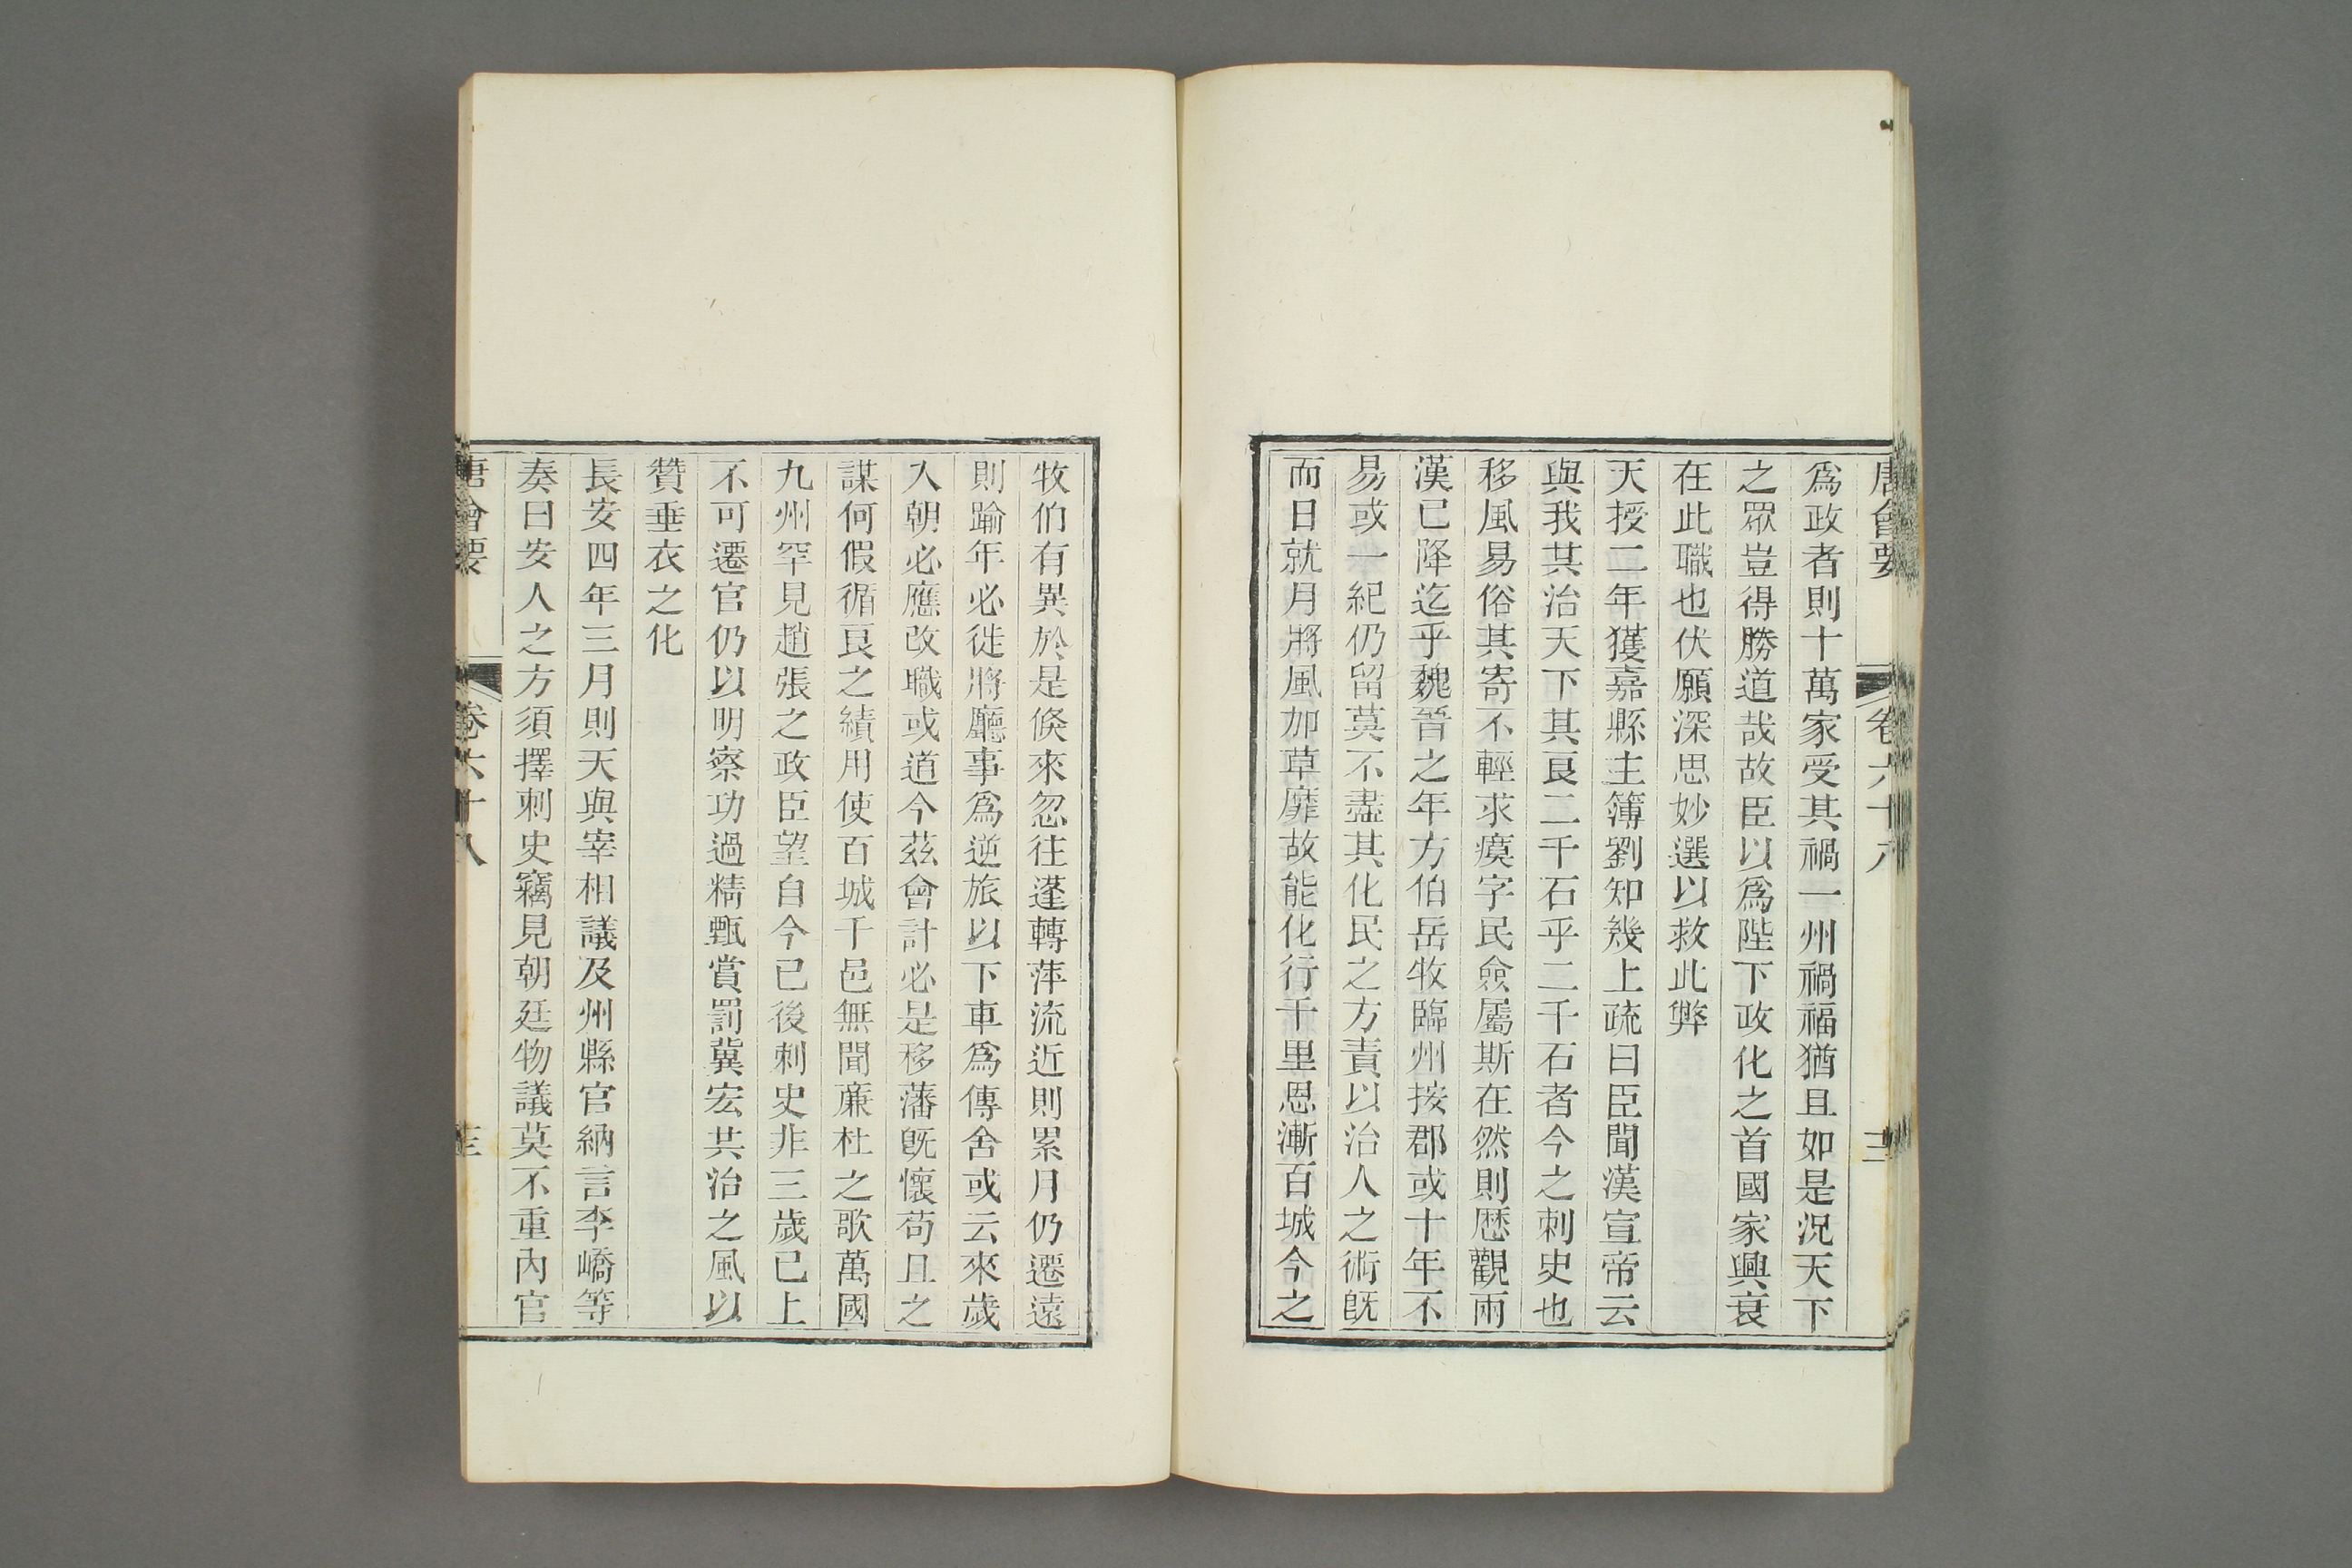 唐會要 卷六十八
爲政者則十萬家受其禍一州禍福猶且如是況天下
之眾豈得勝道哉故臣以爲陛下政化之首國家興衰
在此職也伏願深思妙選以救此弊
天授二年獲嘉縣主簿劉知幾上疏曰臣聞漢宣帝云
與我其治天下其良二千石乎二千石者今之刺史也
移風易俗其寄不輕求瘼字民僉屬斯在然則歷觀兩
漢已降迄乎魏晉之年方伯岳牧臨州按郡或十年不
易或一紀仍留莫不盡其化民之方責以治人之術旣
而日就月將風加草靡故能化行千里恩漸百城今之
牧伯有異於是倏來忽往蓬轉萍流近則累月仍遷遠
則踰年必徙將廳事爲逆旅以下車爲傳舍或云來歲
入朝必應改職或道今茲會計必是移藩旣懷苟且之
謀何假循良之績用使百城千邑無聞廉杜之歌萬國
九州罕見趙張之政臣望自今已後刺史非三歲已上
不可遷官仍以明察功過精甄賞罰冀宏共治之風以
贊垂衣之化
長安四年三月則天與宰相議及州縣官納言李嶠等
奏曰安人之方須擇刺史竊見朝廷物議莫不重內官
唐會要 卷六十八